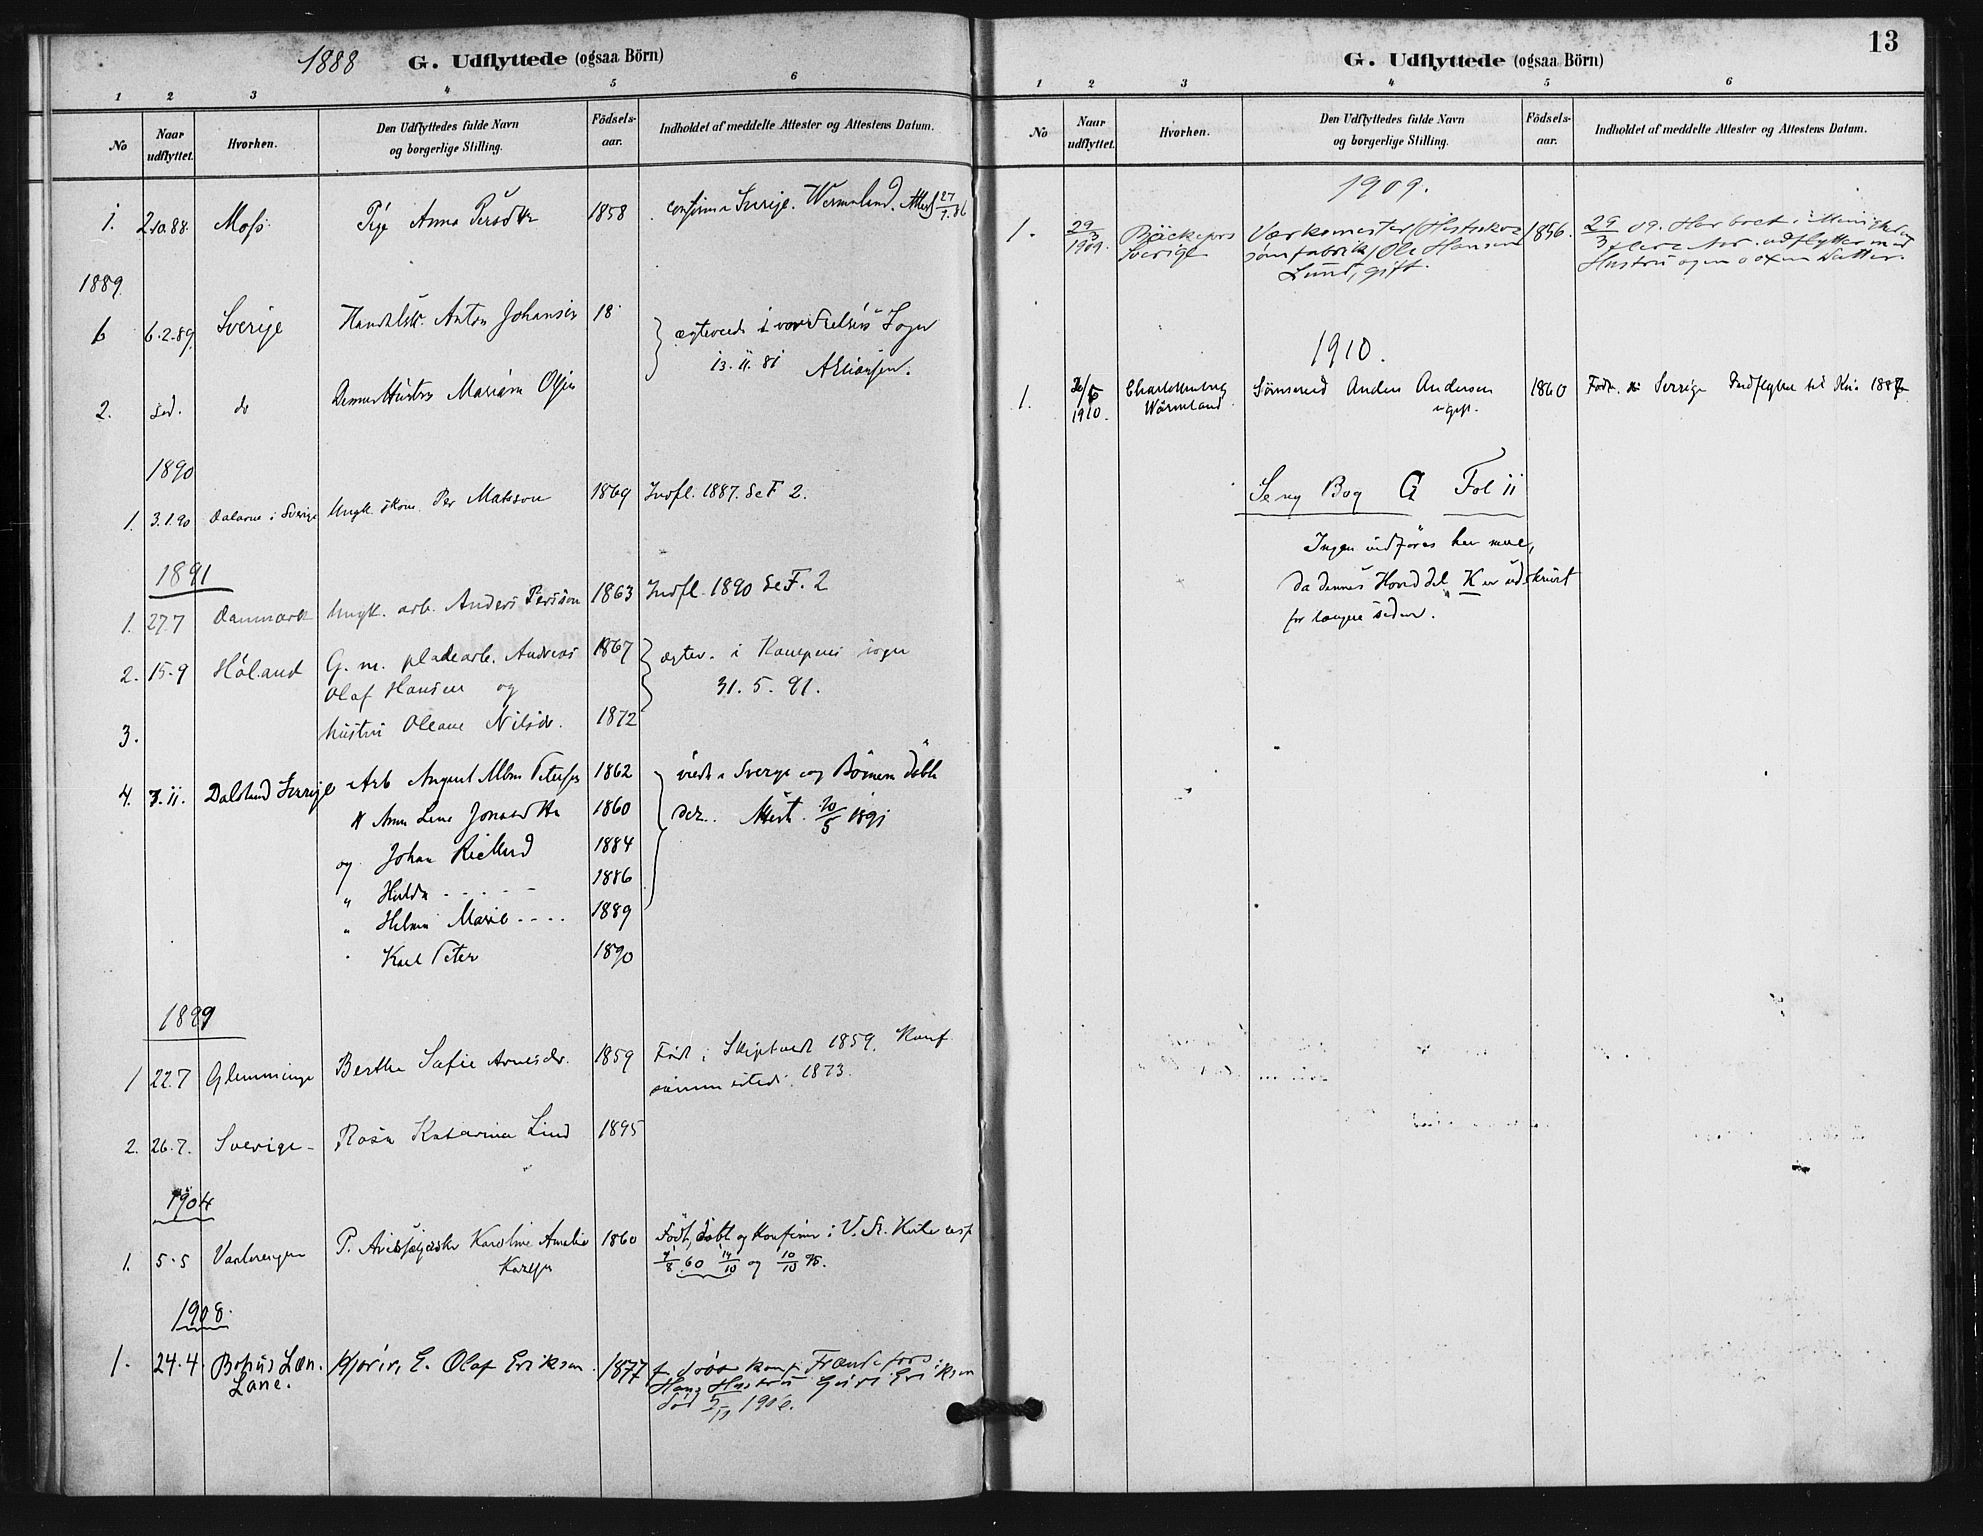 1888 G. Udflyttede (ogsaa Börn)
1 2 3 4 5 6
No Naar udflyttet. Hvorhen. Den Udflyttedes fulde Navn og borgerlige Stilling. Födsels-aar. Indholdet af meddelte Attester og Attestens Datum.
1. 2.10.88. Moss. Pige Anna Persdtr 1858 confirm i Sverige. Wermeland. Attest 27/9.86
1889.
6.2.89. Sverige Handelsk. Anton Johansen 18
ægteviede i vor Frelsers Sogn
13.11.81
2. s.d. do Dennes Hustru Mariane Olsen
1890
1. 3.1.90 Dalarne i Sverige Ungk. skom. Per Matsson 1869 Indfl. 1887. Se F 2.
1891
1. 27.7 Danmark Ungk. arb. Anders Persson 1863 Indfl. 1890 Se F. 2
2. 15.9 Höland G. m. pladearb. Andreas 1867 ægtev. i Kampens sogn
Olaf Hansen og 31. 5. 91.
3. hustru Oleane Nilsdr. 1872
4. 3.11. Dalsland Sverige Arb August Alb Petersen 1862 viede i Sverge og Börnene döbte
Anna Lena Jonasdtr 1860 der. Attest. 20/5 1891
og Johan Rickard 1884
" Hulda - - - - - 1886
" Helma Marie - - - - 1889
Karl Peter 1890
1899
1 22.7 Glemminge Berthe Sofie Arnesdr. 1859 Födt i Skiptvedt 1859. Konf
sammesteds 1873.
2. 26.7. Sverige - Rosa Katarina Lind 1895
1904
1. 5.5 Vaalerengen P. Karoline Amalie 1860 Födt, döbt og Konfirm i V. Fr. Kirke resp
Karlsen 7/8 60 14/10 og 10/10 75.
1908.
1. 24.4. Bohus Læn. E. Olaf Eriksen. 1877
Lane. Hans Hustru Eriksen
död 5/11
13
G. Udflyttede (ogsaa Börn)
1 2 3 4 5 6
No Naar udflyttet. Hvorhen. Den Udflyttedes fulde Navn og borgerlige Stilling. Födsels-aar. Indholdet af meddelte Attester og Attestens Datum.
1909.
1. 29/3 1909. Bäckefors Værksmester (Hestesko- 1856. 29/3 09. Har boet i Menigheden
Sverige sømfabrik) Ole Hansen flere Aar. udflytter med
Lund, gift. Hustru og en voxen Datter.
1910.
1. 30/6 1910. Charlottenberg Sömsmed Anders Andersen 1860 Född i Sverige Indflyttet til Kra. 1887
Wärmland ugift.
Se ny Bog G Fol 11
Ingen indföres her mere,
da dennes Hoveddel K er udskrevet
for længere siden.